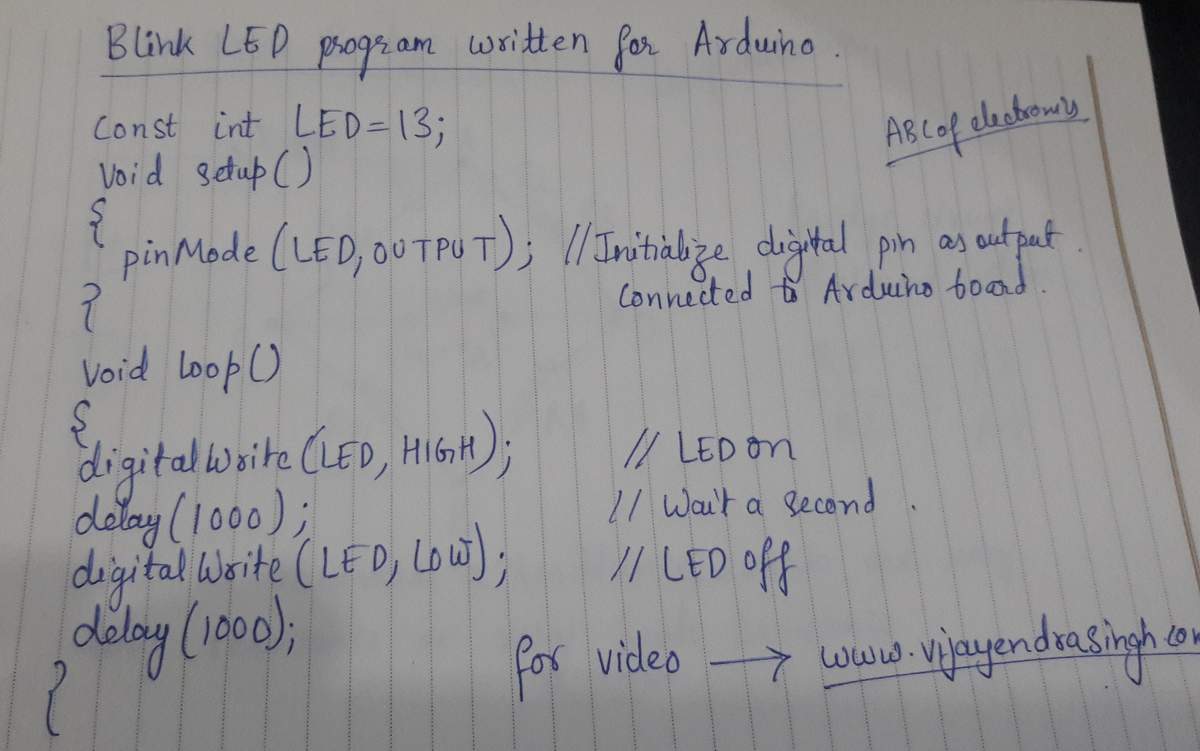 Blink LED program written for Arduino.
ABC of electronis
const int LED=13;
void setup()
{
pinMode(LED,OUTPUT); //Initialize digital pin as output.
connected to Arduino board.
}
void loop()
{
digitalWrite(LED, HIGH); // LED on
delay(1000); // Wait a second.
digitalWrite(LED, LOW); // LED off
delay(1000);
}
for video → www.vijayendrasingh.com